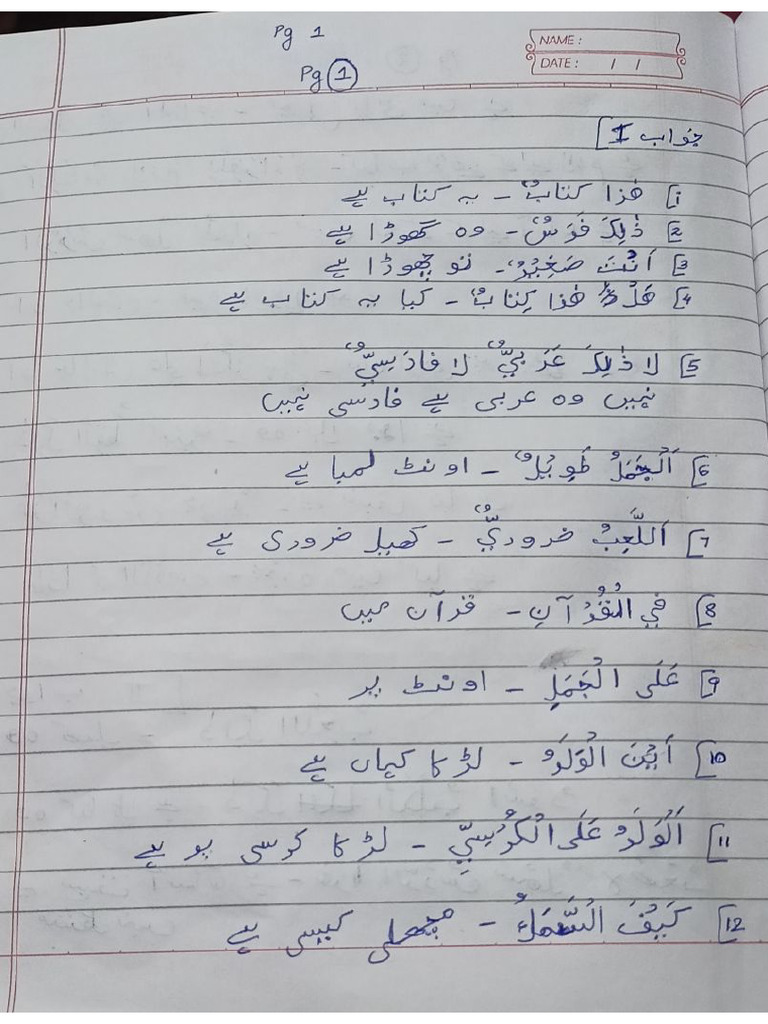 Pg 1
Pg 1
NAME :
DATE : / /
جواب I]
1] هٰذا كتابٌ – یہ کتاب ہے
2] ذٰلِكَ فَرَسٌ – وہ گھوڑا ہے
3] اَنْتَ صَغِيْرٌ – تو چھوڑا ہے
4] هَلْ هٰذا كِتابٌ – کیا یہ کتاب ہے
5] لا ذٰلِكَ عَرَبِيٌّ لا فارَسِيٌّ
نہیں وہ عربی ہے فارسی نہیں
6] اَلْجَمَلُ طَوِيْلٌ – اونٹ لمبا ہے
7] اَللَّعِبُ ضروريٌّ – کھیل ضروری ہے
8] فِي الْقُرْآنِ – قرآن میں
9] عَلَى الْجَمَلِ – اونٹ پر
10] اَيْنَ الْوَلَدُ – لڑکا کہاں ہے
11] اَلْوَلَدُ عَلَى الْكُرْسِيِّ – لڑکا کرسی پر ہے
12] كَيْفَ السَّمَكُ – مچھلی کیسی ہے